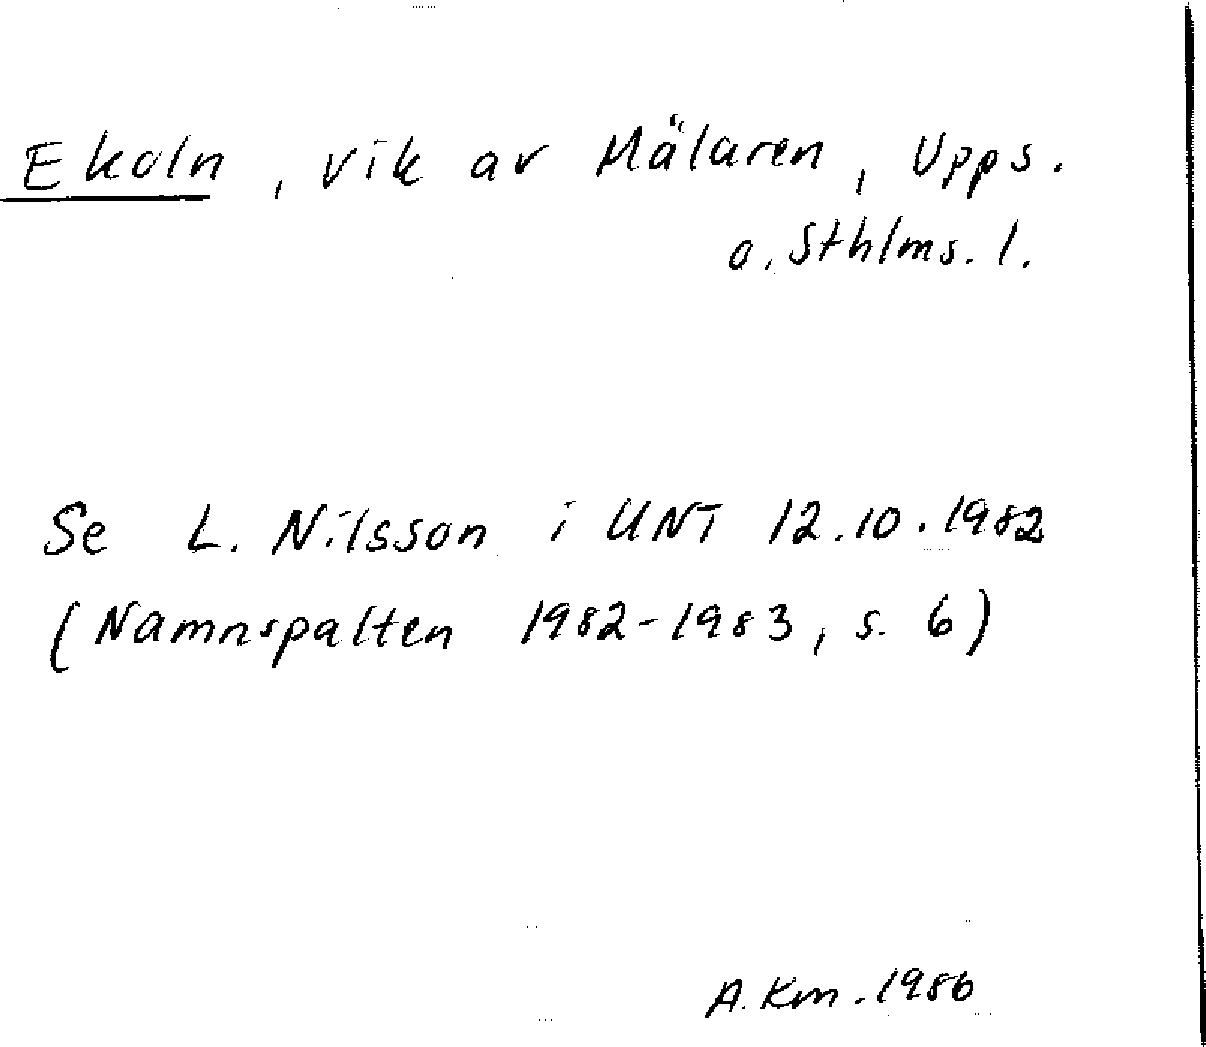 Ekoln, vik av Mälaren, Upps.
o. Sthlms. l.
Se L. Nilsson i UNT 12.10.1982
(Namnspalten 1982-1983, s. 6)
A. Km. 1986